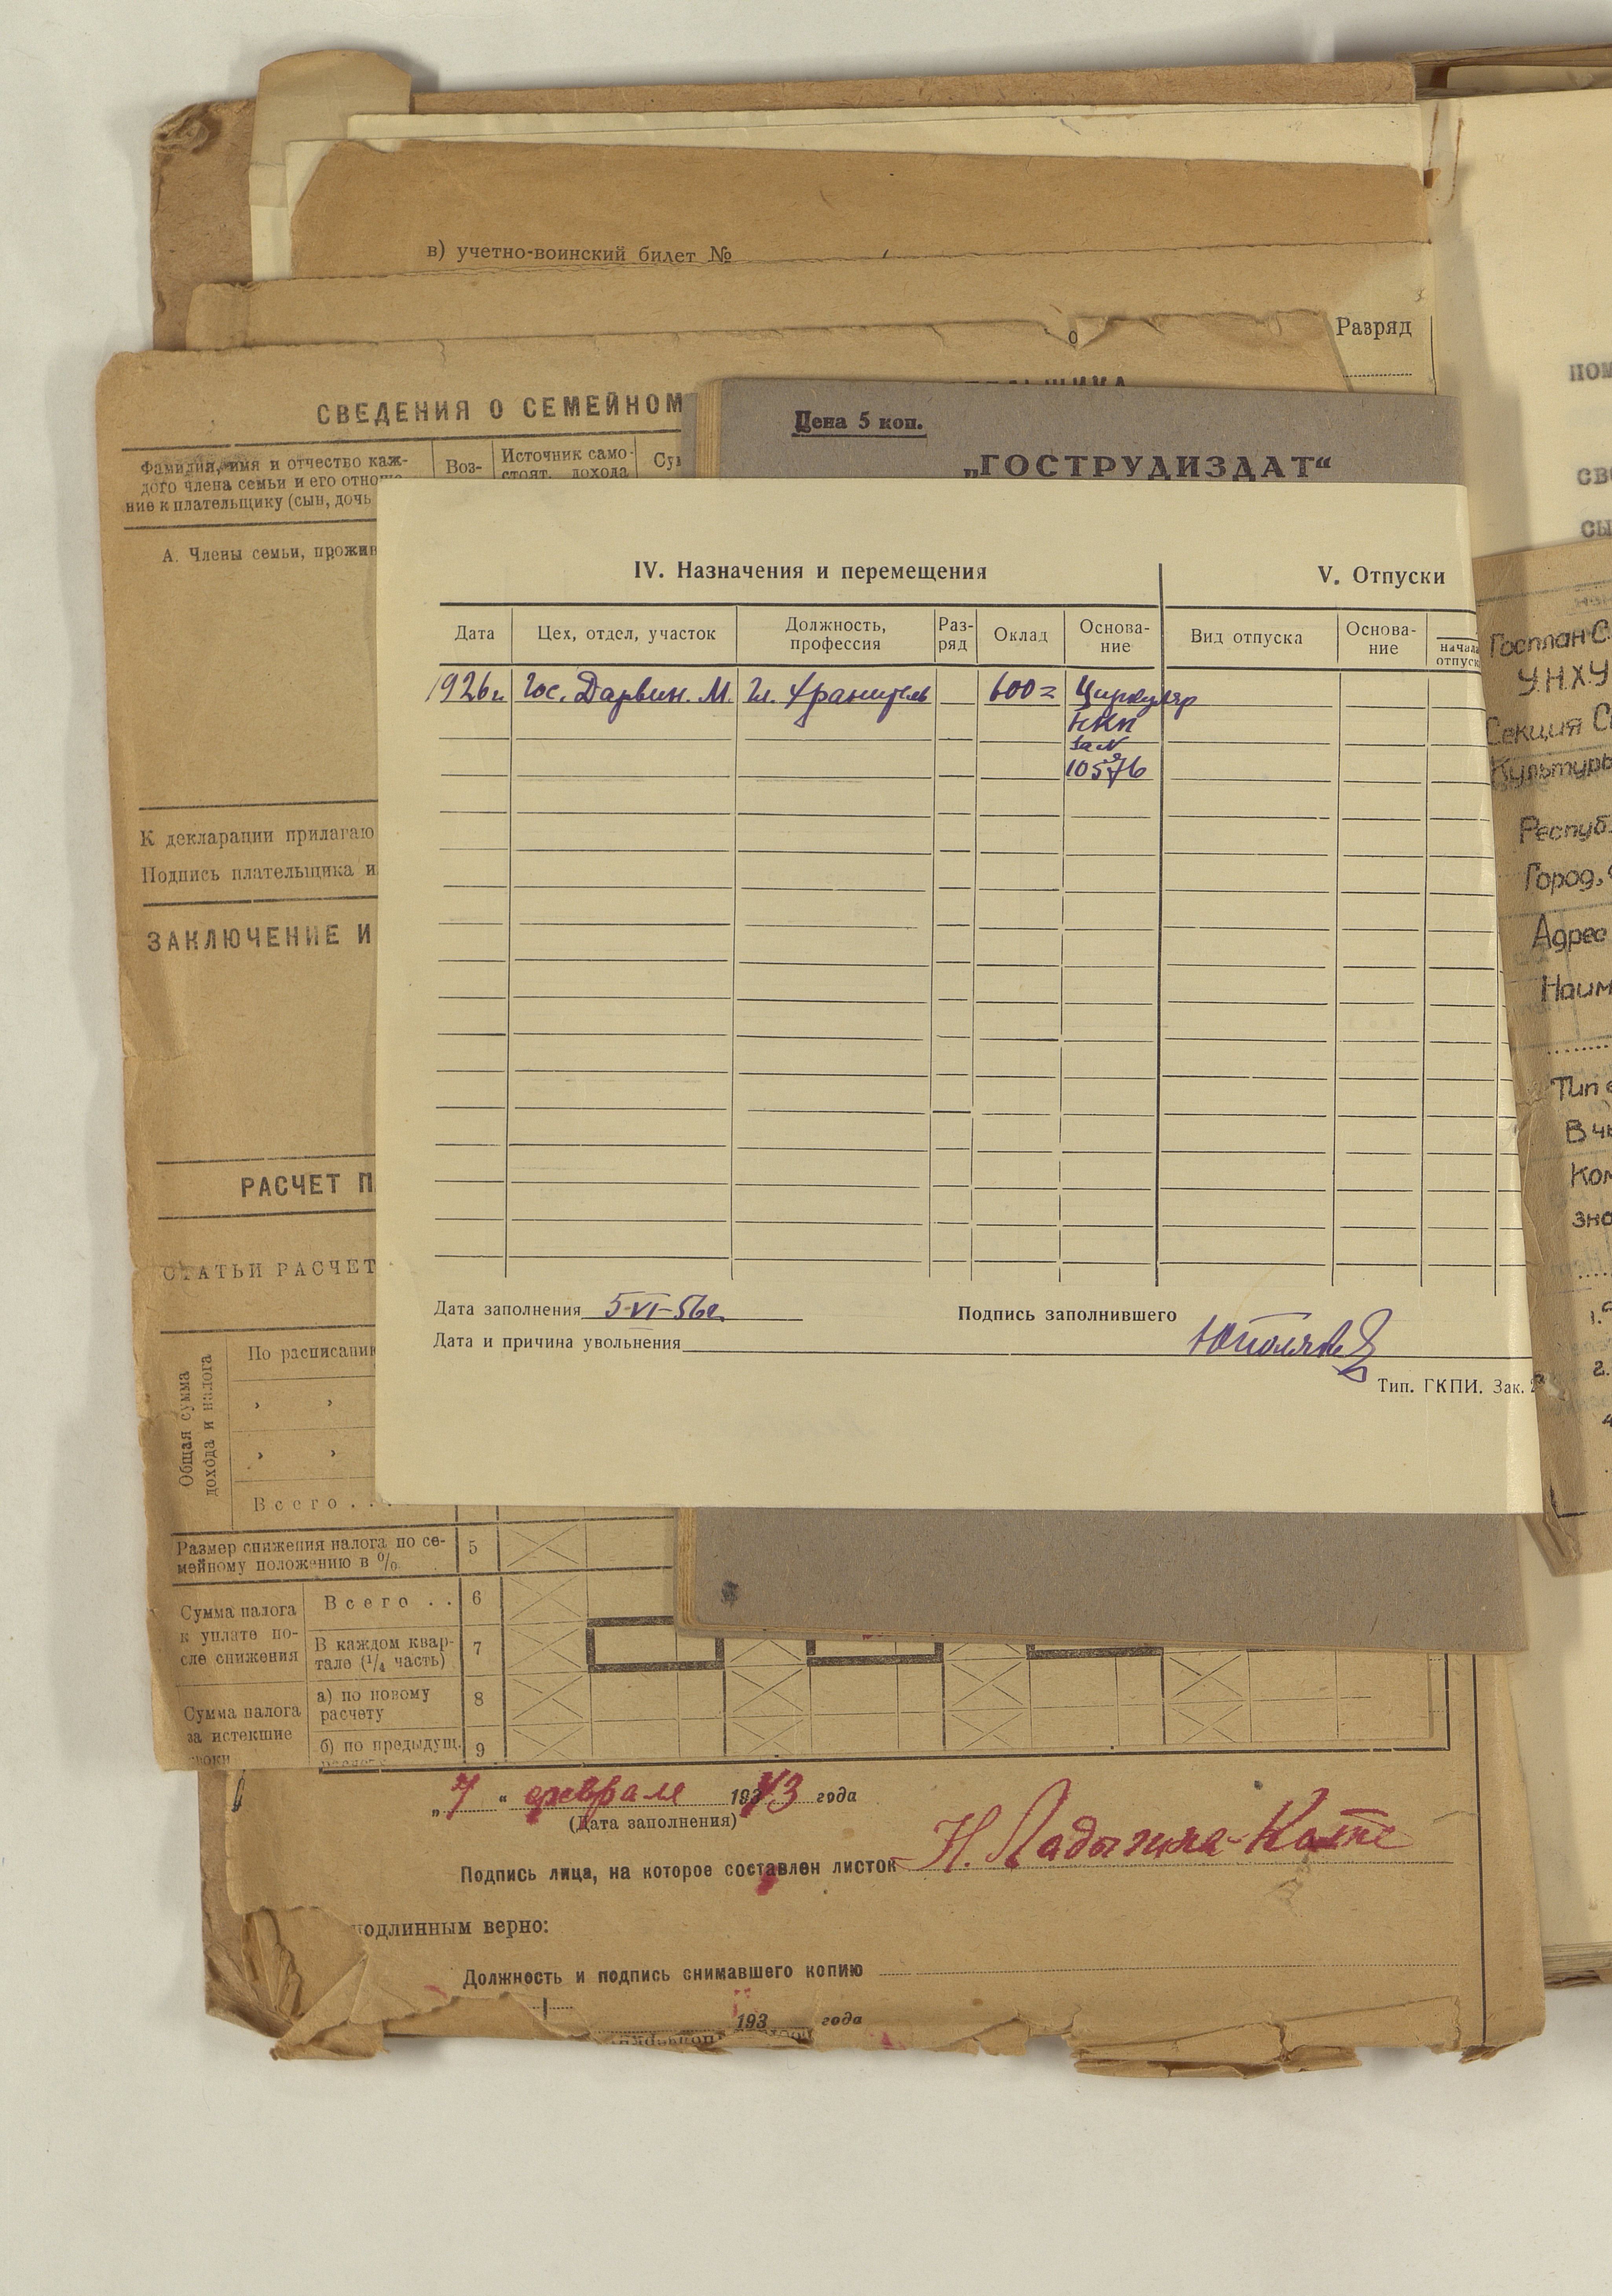 в) учетно-воинский билет №
Разряд
СВЕДЕНИЯ О СЕМЕЙНОМ
Фамилия, имя и отчество каж-
дого члена семьи и его отноше-
ние к плательщику (сын, дочь
Воз-
Источник само-
стоят. дохода
А. Члены семьи, прожив
К декларации прилагаю
Подпись плательщика и
ЗАКЛЮЧЕНИЕ И
РАСЧЕТ П
СТАТЬИ РАСЧЕТ
Общая сумма
дохода и налога
По расписанию
Всего . . .
Размер снижения налога по се-
мейному положению в %
5
Сумма налога
к уплате по-
сле снижения
Всего . .
6
В каждом квар-
тале (1/4 часть)
7
Сумма налога
за истекшие
сроки
а) по новому
расчету
8
б) по предыдущ.
9
Цена 5 коп.
„ГОСТРУДИЗДАТ“
IV. Назначения и перемещения
V. Отпуски
Дата
Цех, отдел, участок
Должность,
профессия
Раз-
ряд
Оклад
Основа-
ние
Вид отпуска
Основа-
ние
начала
отпуск
1926г. Гос. Дарвин. М. Гл. Хранитель 600= Циркуляр
НКП
за №
10576
Дата заполнения 5-VI-56г.
Подпись заполнившего
Дата и причина увольнения
Тип. ГКПИ. Зак.
Госплан С
У.Н.Х.У
Секция С
Культуры
Респуб
Город,
Адрес
Наим
Тип
В чь
Ком
зна
пом
сво
сы
„7“ февраля 1943 года
(Дата заполнения)
Подпись лица, на которое составлен листок Н. Ладыгина-Котс
подлинным верно:
Должность и подпись снимавшего копию
193 года